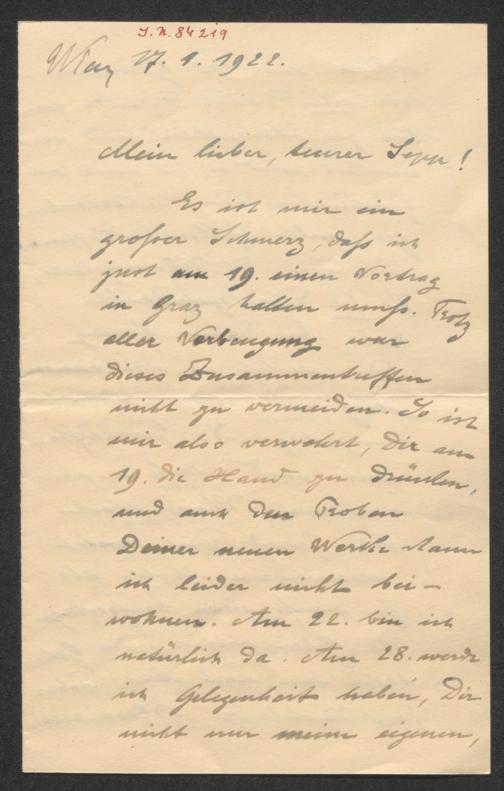 I. N. 84219
Wien, 17. 1. 1922.
Mein lieber, teurer Sepp!
Es ist mir ein
großer Schmerz, daß ich
just am 19. einen Vortrag
in Graz halten muß. Trotz
aller Vorbeugung war
dieses Zusammentreffen
nicht zu vermeiden. So ist
mir also verwehrt, Dir am
19. die Hand zu drücken,
und auch den Proben
Deiner neuen Werke kann
ich leider nicht bei-
wohnen. Am 22. bin ich
natürlich da. Am 28. werde
ich Gelegenheit haben, Dir
nicht nur meine eigenen,